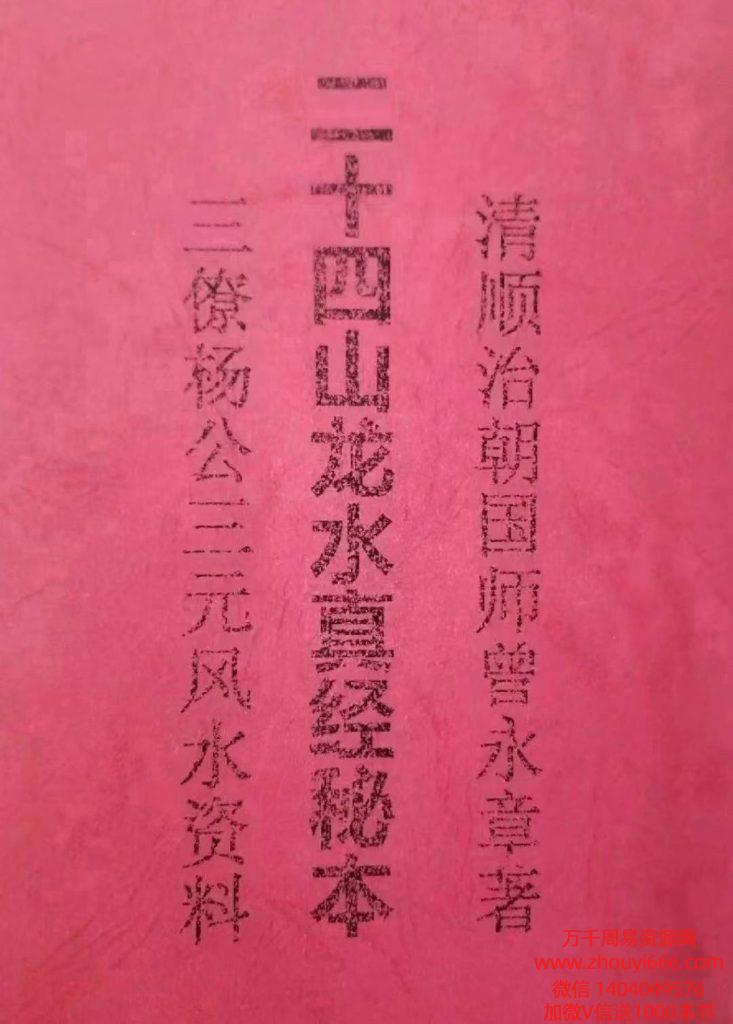 清顺治朝国师曾永章著
二十四山龙水真经秘本
三僚杨公三元风水资料
万千周易资源网
www.zhouyi666.com
微信 1404049576
加微V信送1000本书